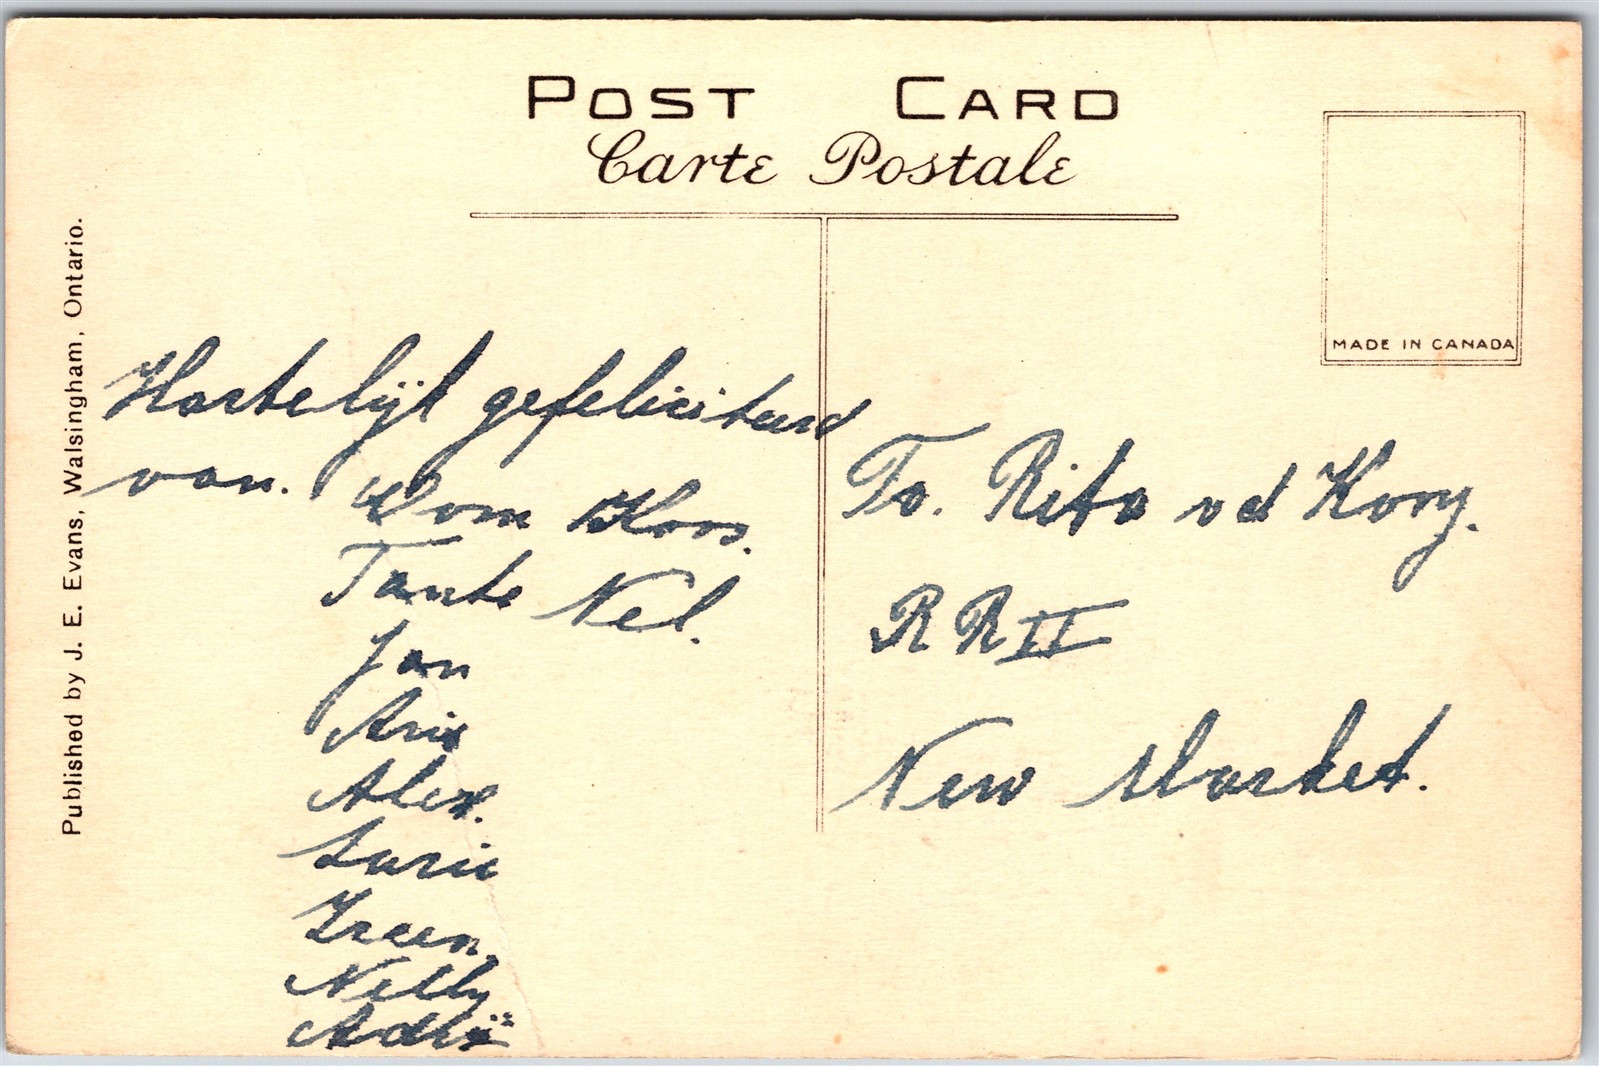 POST CARD
Carte Postale
MADE IN CANADA
Published by J. E. Evans, Walsingham, Ontario.
Hartelijk gefeliciteerd
van.
Oom Koos.
Tante Nel.
Jan
Arie
Alex.
Ireen
Nelly
To. Rita vd Kooy.
RR II
New Market.